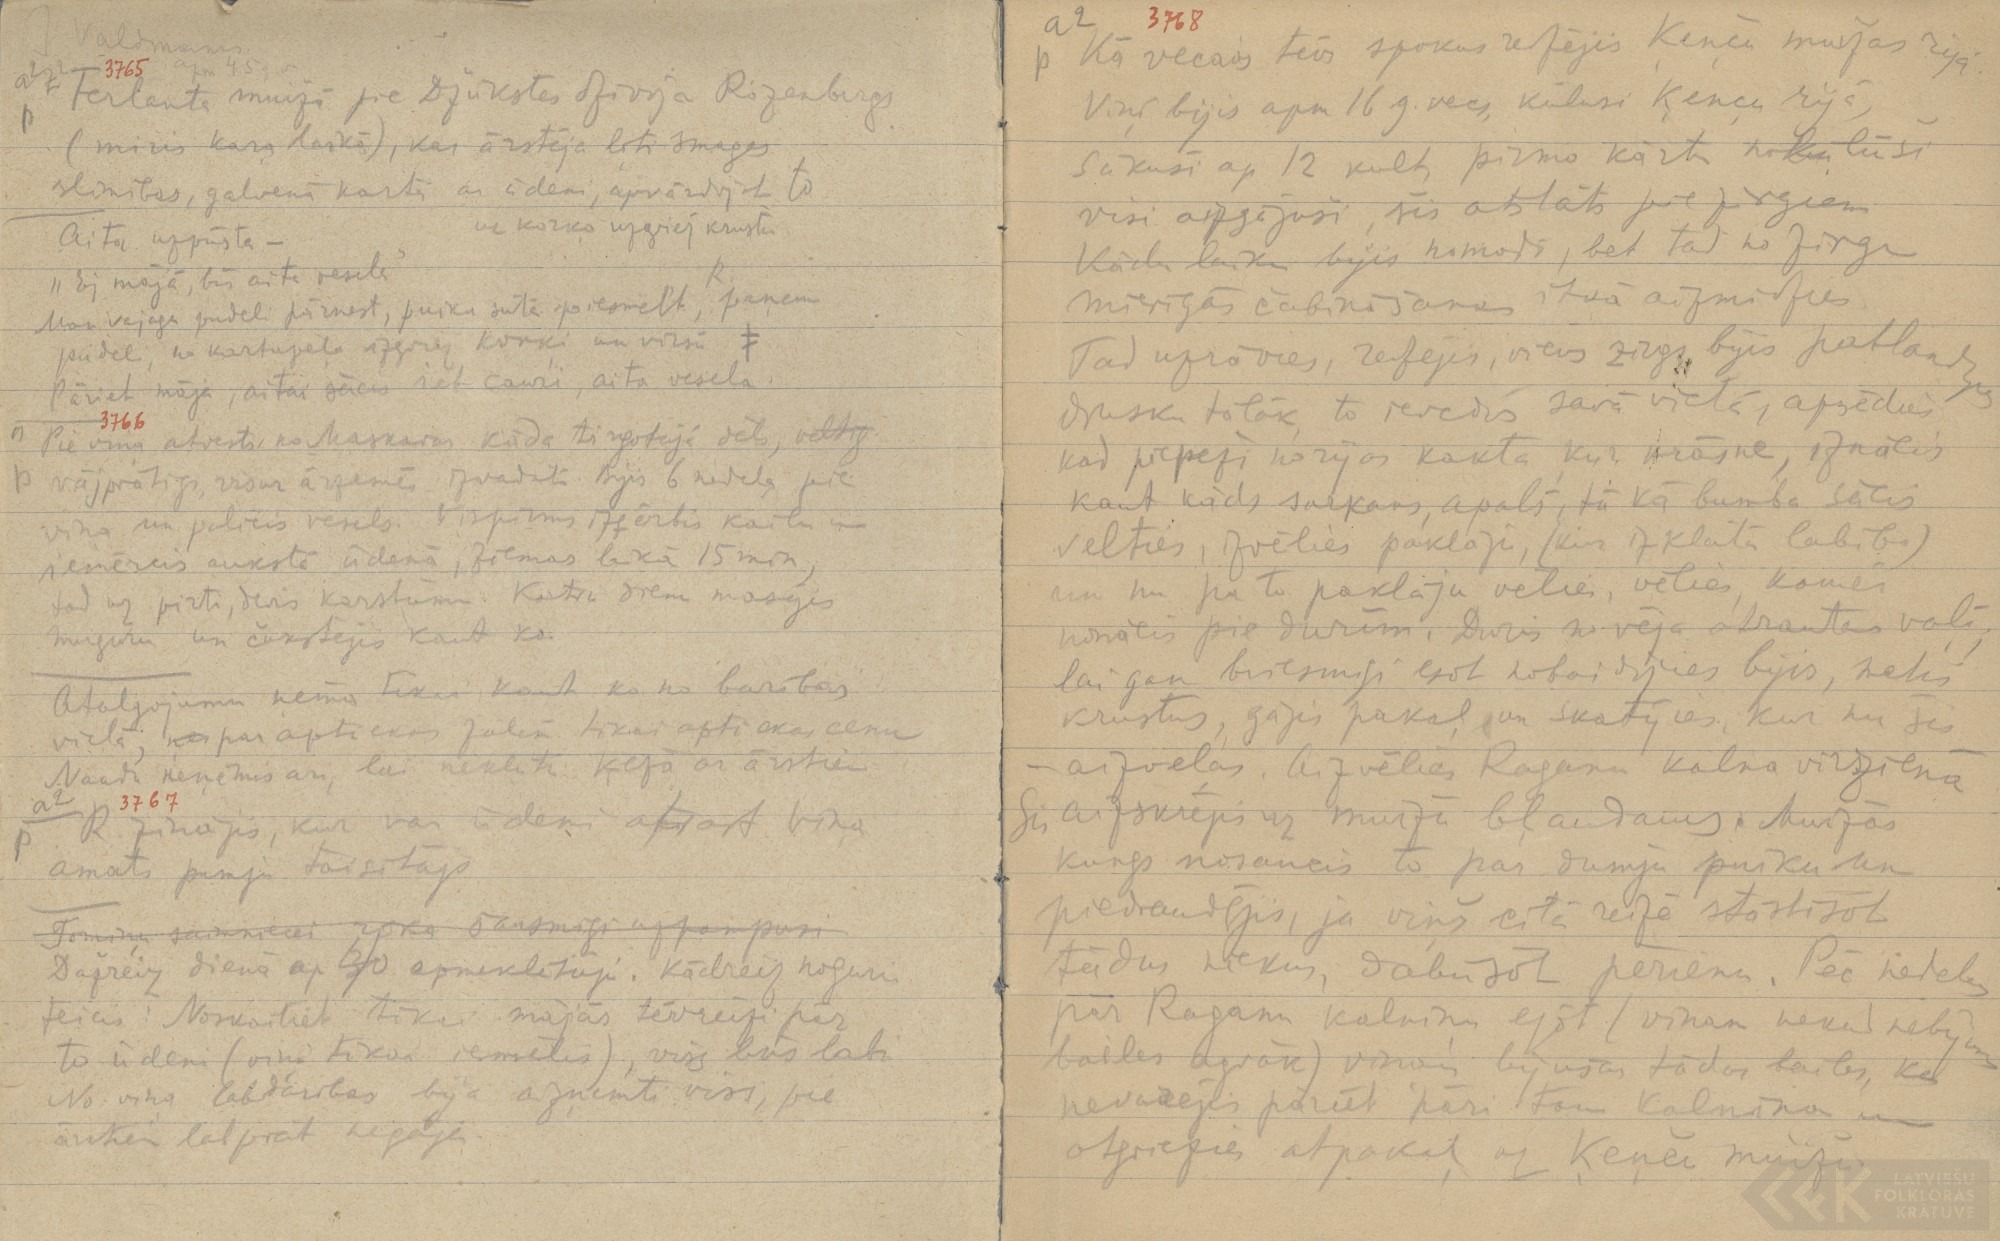 J Valdmanis
apm 45 g v
a2 3765
p Ferlanta muižā pie Džūkstes dzīvoja Rozenbergs
(miris kara laikā), kas ārstēja ļoti smagas
slimības, galvenā kārtā ar ūdeni, apvārdojot to
Aita uzpūsta – uz korķa uzgriež krustu
"Ej mājā, būs aita vesela"
Man vajaga pudeli pārnest, puiku sūta piesmelt, R. paņem
pudeli, no kartupeļa izgriež korķi un virsū ‡
Pāriet mājā, aitai sācis iet cauri, aita vesela.
3766
p Pie viņa atvests no Maskavas kāda tirgotāja dēls,
vājprātīgs, visur ārzemēs izvadāts. Bijis 6 nedēļas pie
viņa un palicis vesels. Vispirms izģērbis kailu un
iemērcis aukstā ūdenī, ziemas laikā 15 min,
tad uz pirti, devis karstumu. Katru dienu masējis
muguru un čukstējis kaut ko.
Atalgojumu ņēma tikai kaut ko no barības
vielā, par aptiekas zālēm tikai aptiekas cenu
Naudu neņēmis arī, lai nekļūtu ķezā ar ārstiem
a2 3767
p R. zinājis, kur var ūdeni atrast Viņa
amats pumpju taisītājs
Tomiņu saimniecei roka šausmīgi uzpampusi
Dažreiz dienā ap 30 apmeklētāju. Kādreiz noguris
teicis: Noskaitiet tikai mājās tēvreizi pār
to ūdeni (viņš tikai iesmēlis), viss būs labi
No viņa labdarības bija aizņemti visi, pie
ārstiem labprāt negāja.
a2 3768
p Kā vecais tēvs spokus redzējis Ķenču muižas rijā.
Viņš bijis apm 16 g. vecs, kūluši Ķenču rijā,
Sākuši ap 12 kult, pirmo kārtu nokūluši
visi aizgājuši, šis atstāts pie zirgiem
Kādu laiku bijis nomodā, bet tad no zirgu
mierīgās čabināšanas itkā aizmidzies
Tad uzrāvies, redzējis, viens zirgs bijis patlaidzies
drusku tālāk, to ievedis savā vietā, apsēdies
kad piepeži no rijas kakta, kur krāsne, iznācis
kaut kāds sarkans, apaļš, tā kā bumba sācis
velties, izvēlies paklāji, (kur izklāta labība)
un nu pa to paklāju vēlies, vēlies, kamēr
nonācis pie durvīm. Durvis no vēja atrautas vaļā,
lai gan briesmīgi esot nobaidījies bijis, metis
krustus, gājis pakaļ un skatījies, kur nu šis
– aizvelas. Aizvēlies Raganu kalna virzienā
Šis aizskrējis uz muižu bļaudams. Muižas
kungs nosaucis to par dumju puiku un
piedraudējis, ja viņš citā reizē stāstīšot
tādus niekus, dabūšot pērienu. Pēc nedēļas
pār Raganu kalniņu ejot (viņam nekad nebijušas
bailes agrāk) viņam bijušas tādas bailes, ka
nevarējis pāriet pāri tam kalniņam un
atgriezies atpakaļ uz Ķenču muižu
LATVIEŠU
FOLKLORAS
KRĀTUVE